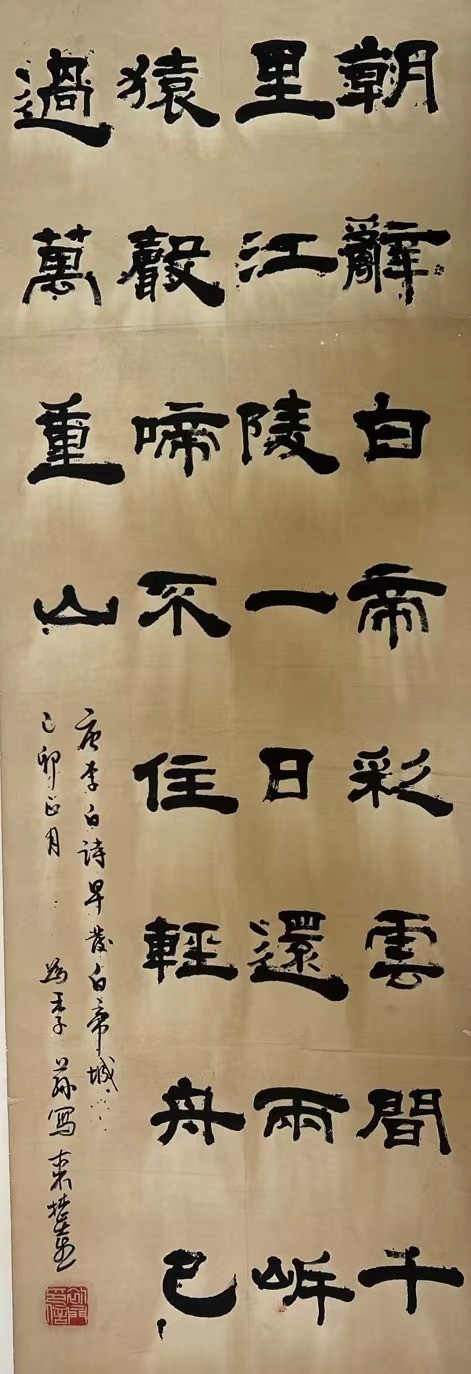 朝辭白帝彩雲間千
里江陵一日還兩岸
猿聲啼不住輕舟已
過萬重山
唐李白詩早發白帝城
己卯正月 為 寫